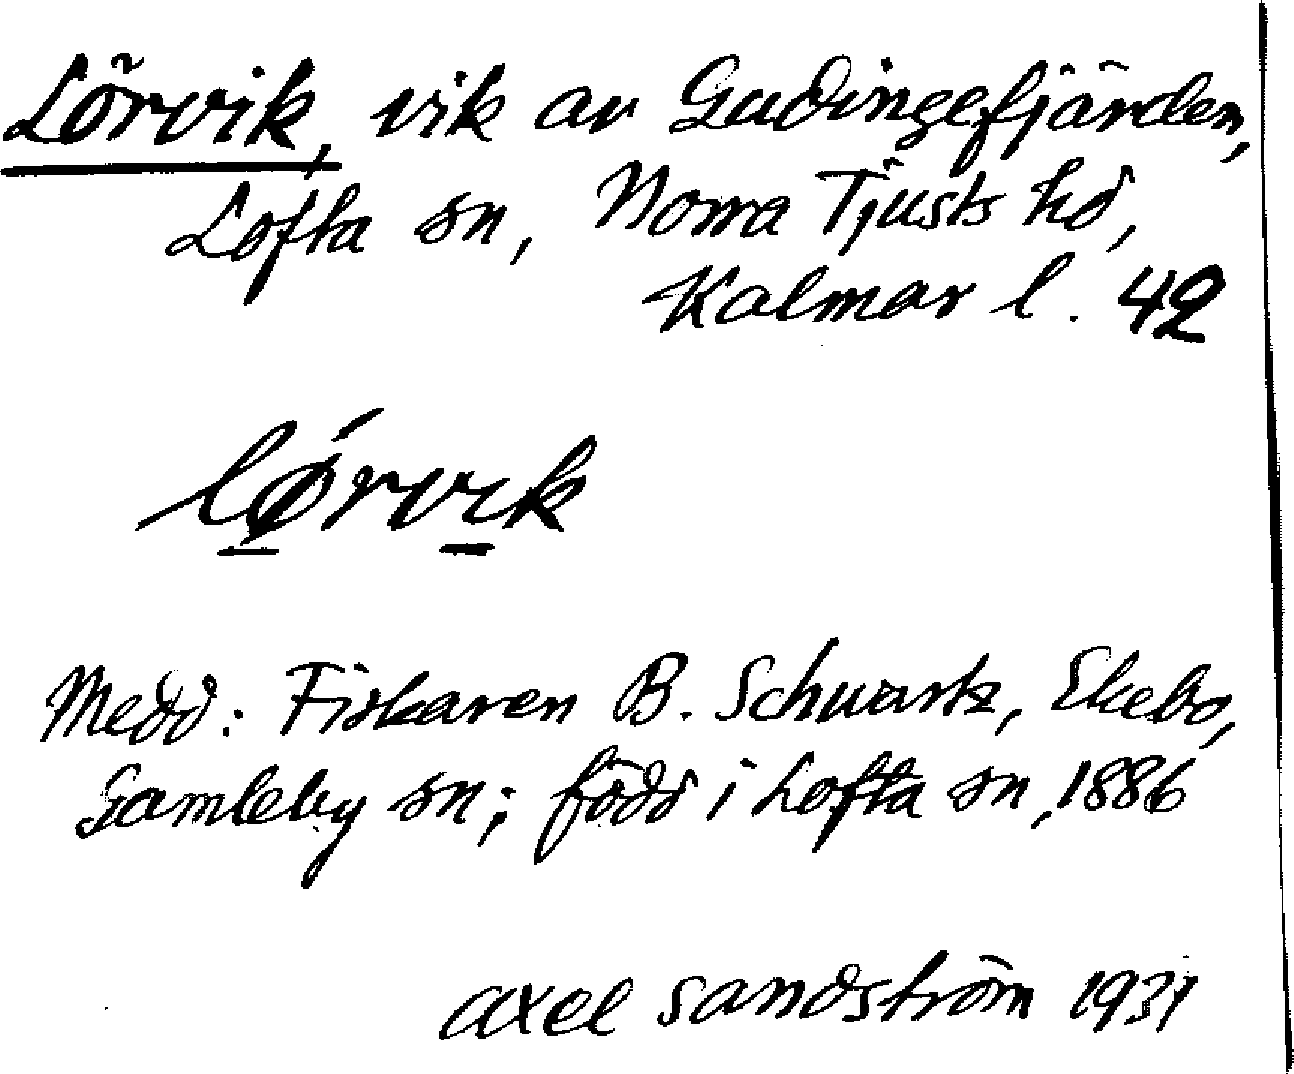 Lörvik, vik av Gudingefjärden,
Lofta sn, Norra Tjusts hd,
Kalmar l. 42
lørvik
Medd: Fiskaren B. Schwartz, Ekebo,
Gamleby sn; född i Lofta sn, 1886
Axel Sandström 1931